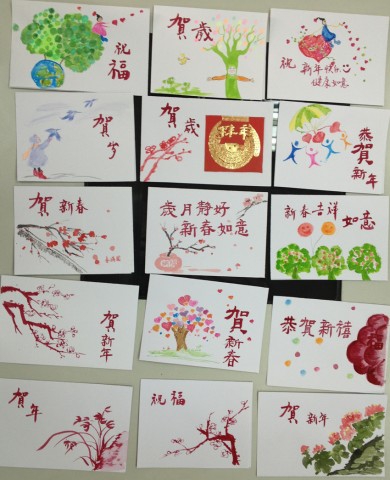 祝
福
賀歲
祝 新年快心
健康如意
賀
兮
賀
歲
恭
賀
新
年
賀 新春
歲月靜好
新春如意
新春吉祥
如意
賀
新
年
賀
新
春
恭賀新禧
賀
年
祝福
賀 新年